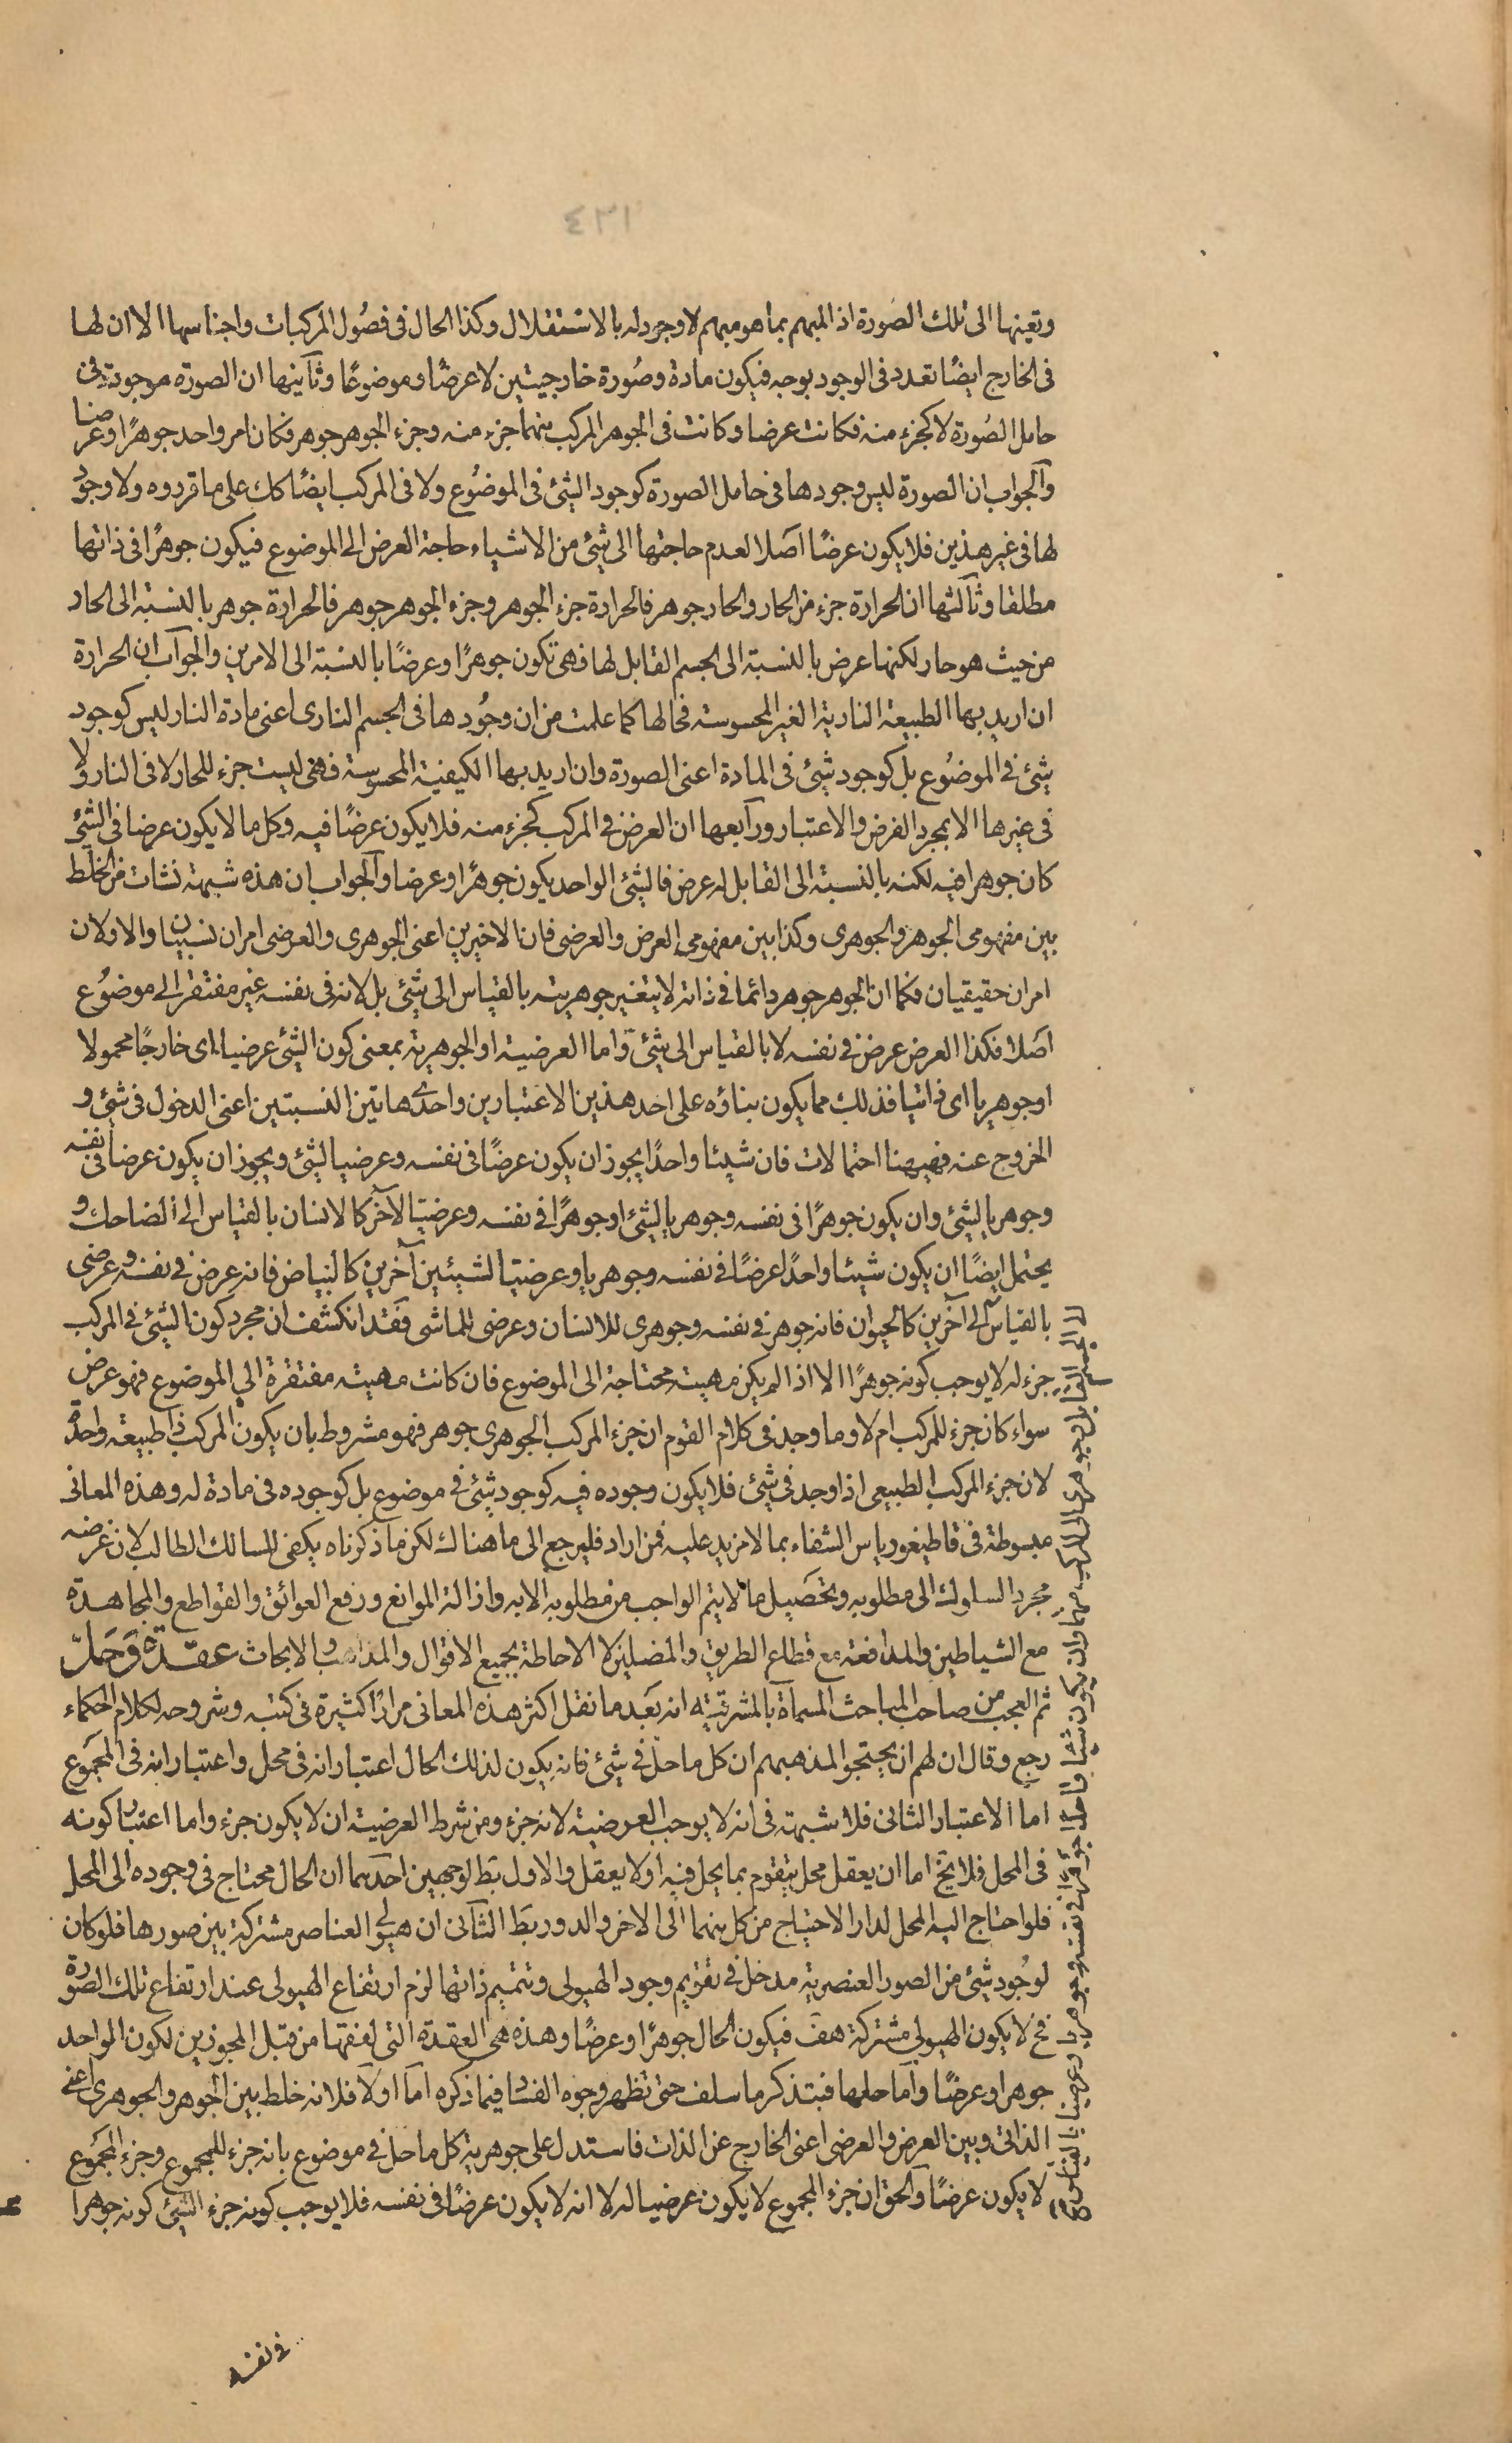 ٤٣١
وتعينها الى تلك الصورة اذ المبهم بما هو مبهم لا وجود له بالاستقلال وكذا الحال فى فصول المركبات واجناسها الا ان لها
فى الخارج ايضًا تعدد فى الوجود بوجه فيكون مادة وصُورة خارجيتين لا عرضًا وموضوعًا وثآنيها ان الصورة موجودة فى
حامل الصُورة لا كجزء منه فكانت عرضا وكانت فى الجوهر المركب منهما جزء منه وجزء الجوهر جوهر فكان امر واحد جوهرًا وعرضا
وآلجواب ان الصورة ليس وجودها فى حامل الصورة كوجود الشئ فى الموضُوع ولا فى المركب ايضًا كك على ما قرروه ولا وجود
لها فى غير هذين فلا يكون عرضًا اصَلا لعدم حاجتها الى شئ من الاشياء حاجة العرض الى الموضوع فيكون جوهرًا فى ذاتها
مطلقا وثآلثها ان الحرارة جزء من الحار والحار جوهر فالحرارة جزء الجوهر وجزء الجوهر جوهر فالحرارة جوهر بالنسبة الى الحار
من حيث هو حار لكنها عرض بالنسبة الى الجسم القابل لها فهى تكون جوهرًا وعرضًا بالنسبة الى الامرين وآلجوآب ان الحرارة
ان اريد بها الطبيعة النارية الغير المحسوسة فحالها كما علمت من ان وجُودها فى الجسم النارى اعنى مادة النار ليس كوجود
شئ فى الموضُوع بل كوجود شئ فى المادة اعنى الصورة وان اريد بها الكيفية المحسوسة فهى ليست جزء للحار لا فى النار ولا
فى غيرها الا بمجرد الفرض والاعتبار ورآبعها ان العرض فى المركب كجزء منه فلا يكون عرضًا فيه وكل ما لا يكون عرضا فى الشئ
كان جوهرا فيه لكنه بالنسبة الى القابل له عرض فالشئ الواحد يكون جوهرًا وعرضا وآلجواب ان هذه شبهة نشات من الخلط
بين مفهومى الجوهر والجوهرى وكذا بين مفهومى العرض والعرضى فان الاخيرين اعنى الجوهرى والعرضى امران نسبيان والاولان
امران حقيقيان فكما ان الجوهر جوهر دائما فى ذاته لا يتغير جوهريته بالقياس الى شئ بل لانه فى نفسه غير مفتقر الى موضُوع
اصَلا فكذا العرض عرض فى نفسه لا بالقياس الى شئ وآما العرضية او الجوهرية بمعنى كون الشئ عرضيا اى خارجًا محمولا
او جوهريا اى ذاتيا فذلك مما يكون بناؤه على احد هذين الاعتبارين واحدى هاتين النسبتين اعنى الدخول فى شئ و
الخروج عنه فهيهنا احتمالات فان شيئا واحدًا يجوز ان يكون عرضًا فى نفسه وعرضيا لشئ ويجوز ان يكون عرضا فى نفسه
وجوهريا لشئ وان يكون جوهرًا فى نفسه وجوهريا لشئ او جوهرًا فى نفسه وعرضيًا لآخر كالانسان بالقياس الى الضاحك و
يحتمل ايضًا ان يكون شيئا واحدًا عرضًا فى نفسه وجوهريا وعرضيًا لشيئين آخرين كالبياض فانه عرض فى نفسه وعرضى
بالقياس الى آخرين كالحيوان فانه جوهر فى نفسه وجوهرى للانسان وعرضى للماشى فقد انكشف ان مجرد كون الشئ فى المركب
جزء له لا يوجب كونه جوهرًا الا اذا لم يكن مهيته محتاجة الى الموضوع فان كانت مهيته مفتقرة الى الموضوع فهو عرض
سواء كان جزء للمركب ام لا وما وجد فى كلام القوم ان جزء المركب الجوهرى جوهر فهو مشروط بان يكون المركب ذا طبيعة واحدة
لان جزء المركب الطبيعى اذا وجد فى شئ فلا يكون وجوده فيه كوجود شئ فى موضوع بل كوجوده فى مادة له وهذه المعانى
مبسوطة فى قاطيغورياس الشفاء بما لا مزيد عليه فمن اراد فليرجع الى ما هناك لكن ما ذكرناه يكفى للسالك الطالب لان غرضه
مجرد السلوك الى مطلوبه وتحصَيل ما لا يتم الواجب من مطلوبه الا به وازالة الموانع ورفع العوائق والقواطع والمجاهدة
مع الشياطين والمدافعة مع قطاع الطريق والمضلين لا الاحاطة بجميع الاقوال والمذاهب والابحاث عقدة وَحَلّ
ثم العجب من صاحب المباحث المسماة بالمشرقية انه بعَد ما نقل اكثر هذه المعانى مرارًا كثيرة فى كتبه وشروحه لكلام الحكماء
رجع وقال ان لهم ان يحتجوا لمذهبهم ان كل ما حل فى شئ فانه يكون لذلك الحال اعتبار انه فى محل واعتبار انه فى المجموع
اما الاعتبار الثانى فلا شبهة فى انه لا يوجب العرضية لانه جزء ومن شرط العرضية ان لا يكون جزء واما اعتبار كونه
فى المحل فلا يخ اما ان يعقل محل يتقوم بما يحل فيه او لا يعقل والاول بط لوجهين احدهما ان الحال محتاج فى وجوده الى المحل
فلو احتاج اليه المحل لدار الاحتياج من كل منهما الى الاخر والدور بَط الثآنى ان هيولى العناصر مشتركة بين صورها فلو كان
لوجُود شئ من الصور العنصرية مدخل فى تقويم وجود الهيولى وتتميم ذاتها لزم ارتفاع الهيولى عند ارتفاع تلك الصورة
فح لا يكون الهيولى مشتركة هف فيكون الحال جوهرًا وعرضًا وهذه هى العقدة التى لفقها من قبل المجوزين لكون الواحد
جوهرا وعرضًا وآما حلها فبتذكر ما سلف حتى تظهر وجوه الفساد فيما ذكره آما اولآ فلانه خلط بين الجوهر والجوهرى اعنى
الذاتى وبين العرض والعرضى اعنى الخارج عن الذات فاستدل على جوهرية كل ما حل فى موضوع بانه جزء للمجموع وجزء المجموع
لا يكون عرضًا وآلحق ان جزء المجموع لا يكون عرضيا له لا انه لا يكون عرضًا فى نفسه فلا يوجب كونه جزء الشئ كونه جوهرا
فى نفسه
الى الجسم القابل جوهرى الى المركب منهما وان يكون شيئا واحدا جوهرًا فى نفسه وجوهريا وعرضيا بالقياس